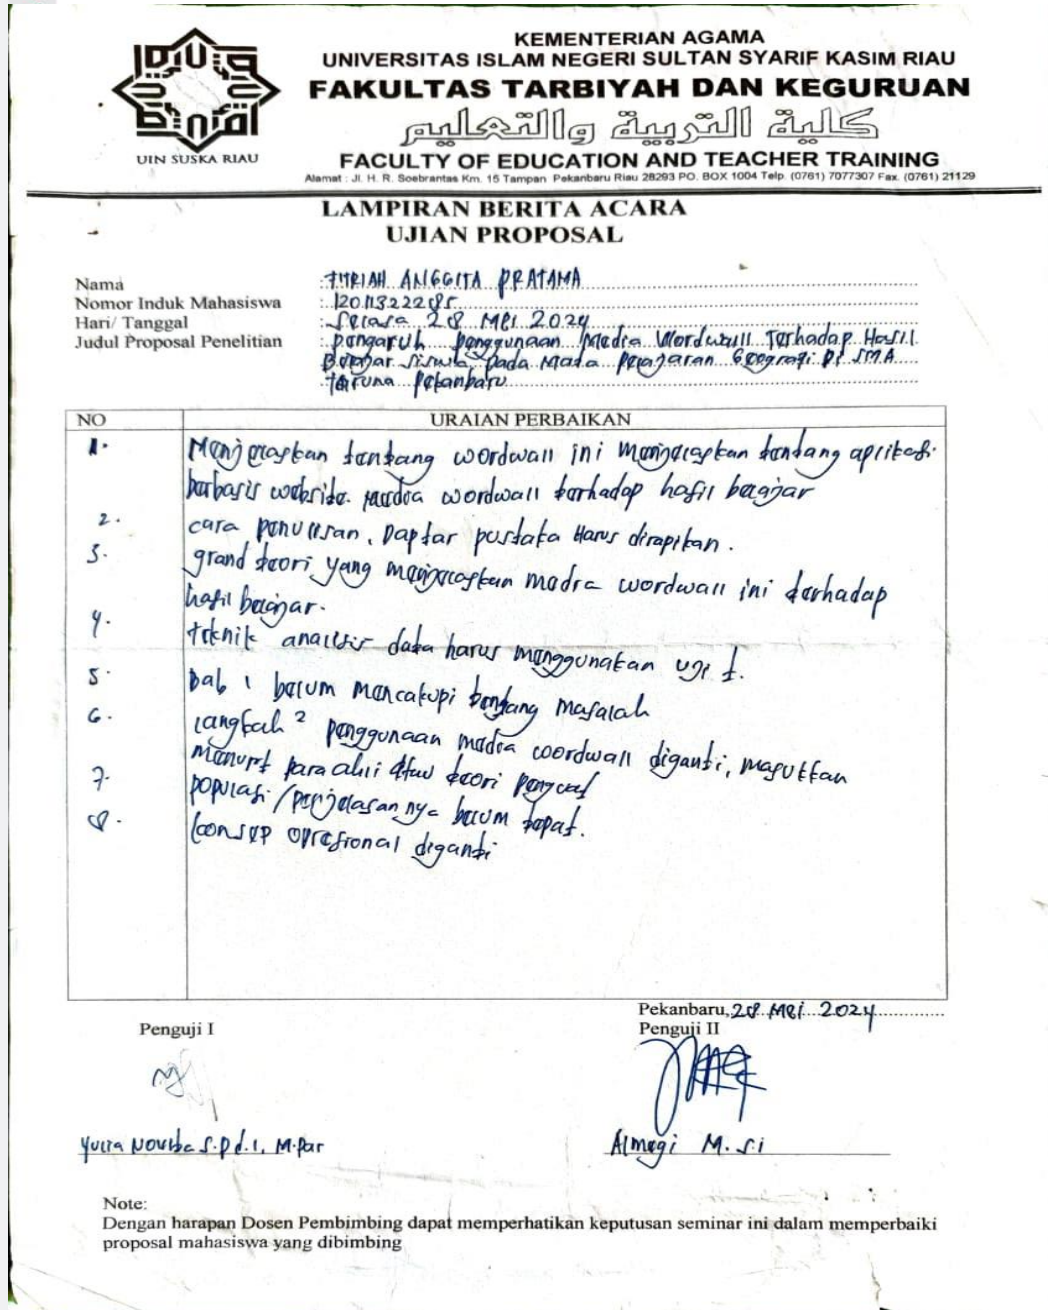 UIN SUSKA RIAU
KEMENTERIAN AGAMA
UNIVERSITAS ISLAM NEGERI SULTAN SYARIF KASIM RIAU
FAKULTAS TARBIYAH DAN KEGURUAN
كلية التربية والتعليم
FACULTY OF EDUCATION AND TEACHER TRAINING
Alamat : Jl. H. R. Soebrantas Km. 15 Tampan Pekanbaru Riau 28293 PO. BOX 1004 Telp. (0761) 7077307 Fax. (0761) 21129
LAMPIRAN BERITA ACARA
UJIAN PROPOSAL
Nama : ANGGITA PRATAMA
Nomor Induk Mahasiswa :
Hari/ Tanggal : Selasa 28 Mei 2024
Judul Proposal Penelitian : pengaruh penggunaan Media Wordwall Terhadap Hasil
Belajar Siswa pada Mata pelajaran Geografi Di SMA
taruna pekanbaru
NO URAIAN PERBAIKAN
1. Menjelaskan tentang wordwall ini menjelaskan tentang aplikasi
berbasis website media wordwall terhadap hasil belajar
2. cara penulisan, Daptar pustaka Harus dirapikan.
3. grand teori yang menjelaskan media wordwall ini terhadap
hasil belajar.
4. teknik analisis data harus menggunakan uji t.
5. bab 1 belum mencakupi tentang masalah
6. langkah² penggunaan media wordwall diganti, masukkan
menurut para ahli atau teori
7. populasi/penjelasannya belum tepat.
8. konsep oprasional diganti
Pekanbaru, 28 Mei 2024
Penguji I
Penguji II
S.Pd.I, M.Par
M.Si
Note:
Dengan harapan Dosen Pembimbing dapat memperhatikan keputusan seminar ini dalam memperbaiki
proposal mahasiswa yang dibimbing